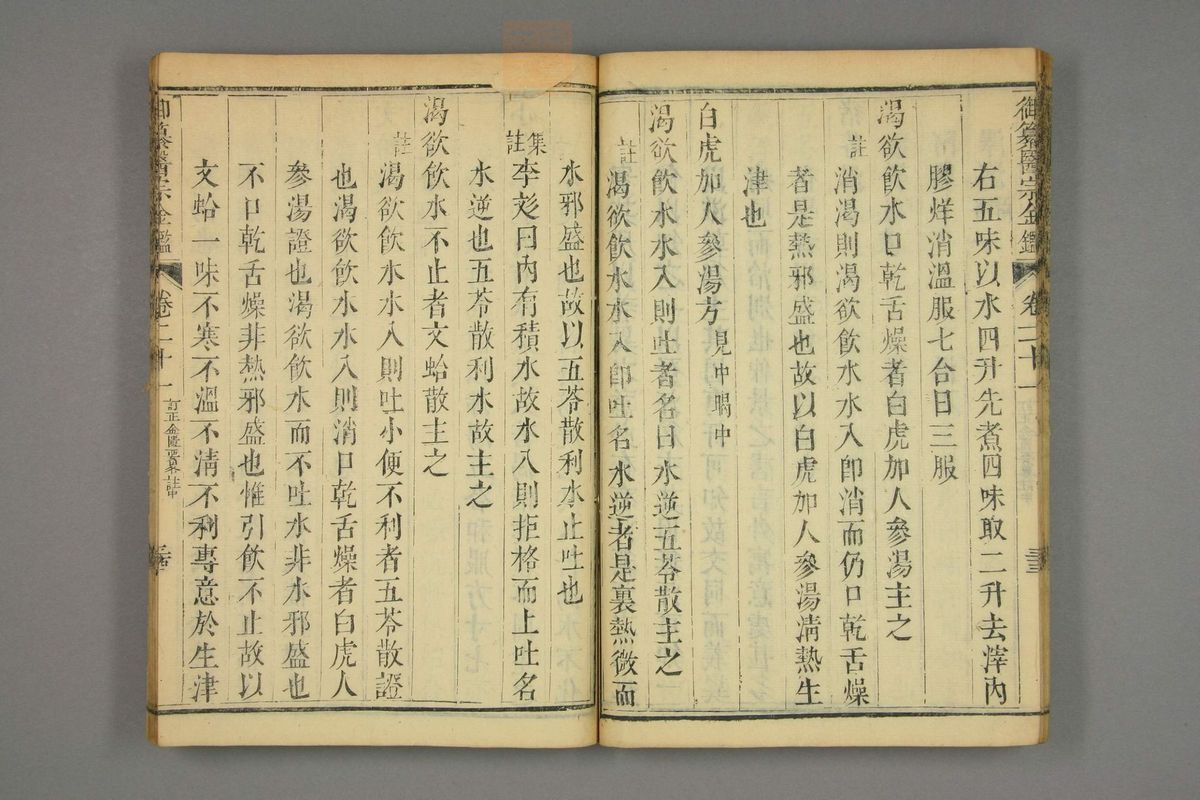 御纂醫宗金鑑 卷二十一 三
右五味以水四升先煮四味取二升去滓內
膠烊消溫服七合日三服
渴欲飮水口乾舌燥者白虎加人參湯主之
註 消渴則渴欲飮水水入卽消而仍口乾舌燥
者是熱邪盛也故以白虎加人參湯淸熱生
津也
白虎加人參湯方 見中暍中
渴欲飮水水入則吐者名曰水逆五苓散主之
註 渴欲飮水水入卽吐名水逆者是裏熱微而
水邪盛也故以五苓散利水止吐也
集註 李彣曰內有積水故水入則拒格而上吐名
水逆也五苓散利水故主之
渴欲飮水不止者文蛤散主之
註 渴欲飮水水入則吐小便不利者五苓散證
也渴欲飮水水入則消口乾舌燥者白虎人
參湯證也渴欲飮水而不吐水非水邪盛也
不口乾舌燥非熱邪盛也惟引飮不止故以
文蛤一味不寒不溫不淸不利專意於生津
御纂醫宗金鑑 卷二十一 訂正金匱要畧註中